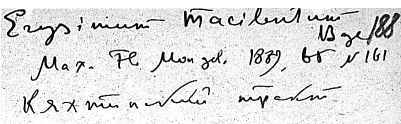 Erysimum macilentum
Bge/188
Max. Fl. Mongol. 1889, 68 N 161
Кяхтинский тракт